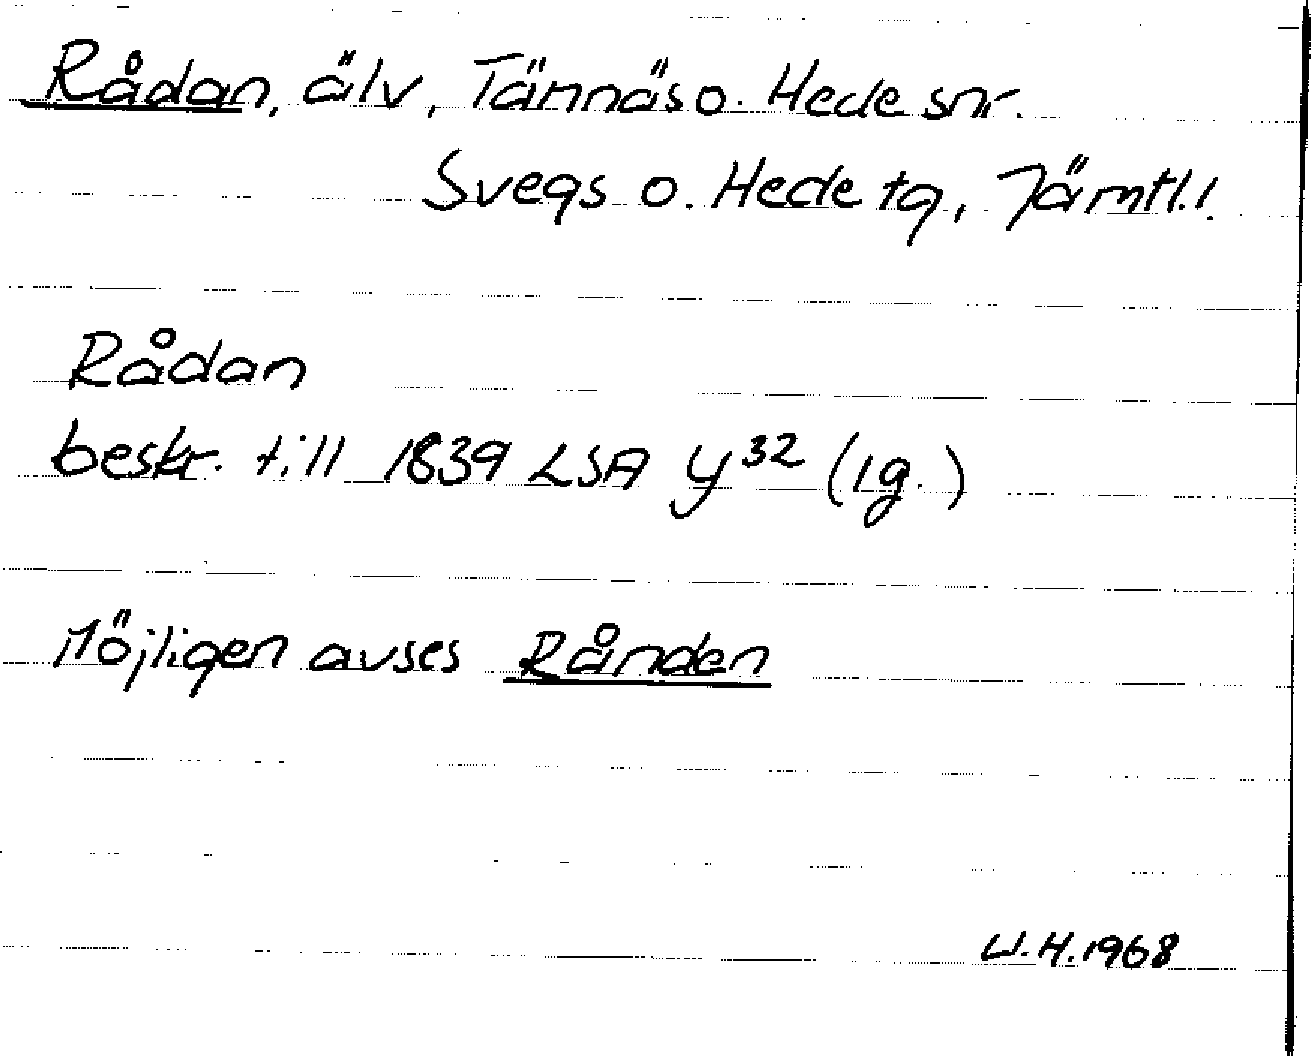 Rådan, älv, Tännäs o. Hede snr.
Svegs o. Hede tg, Jämtl.l.
Rådan
beskr. till 1839 LSA y³² (Lg.)
Möjligen avses Rånden
W.H. 1968